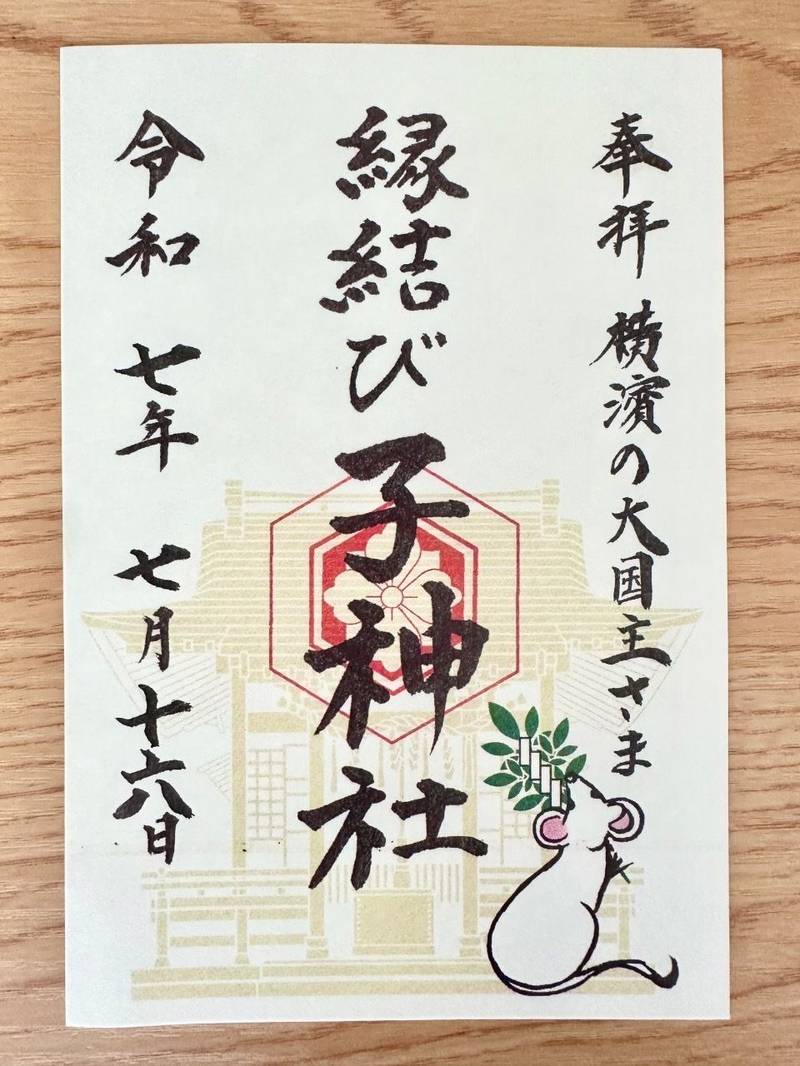 奉拝 横濱の大国主さま
縁結び 子神社
令和 七年 七月十六日